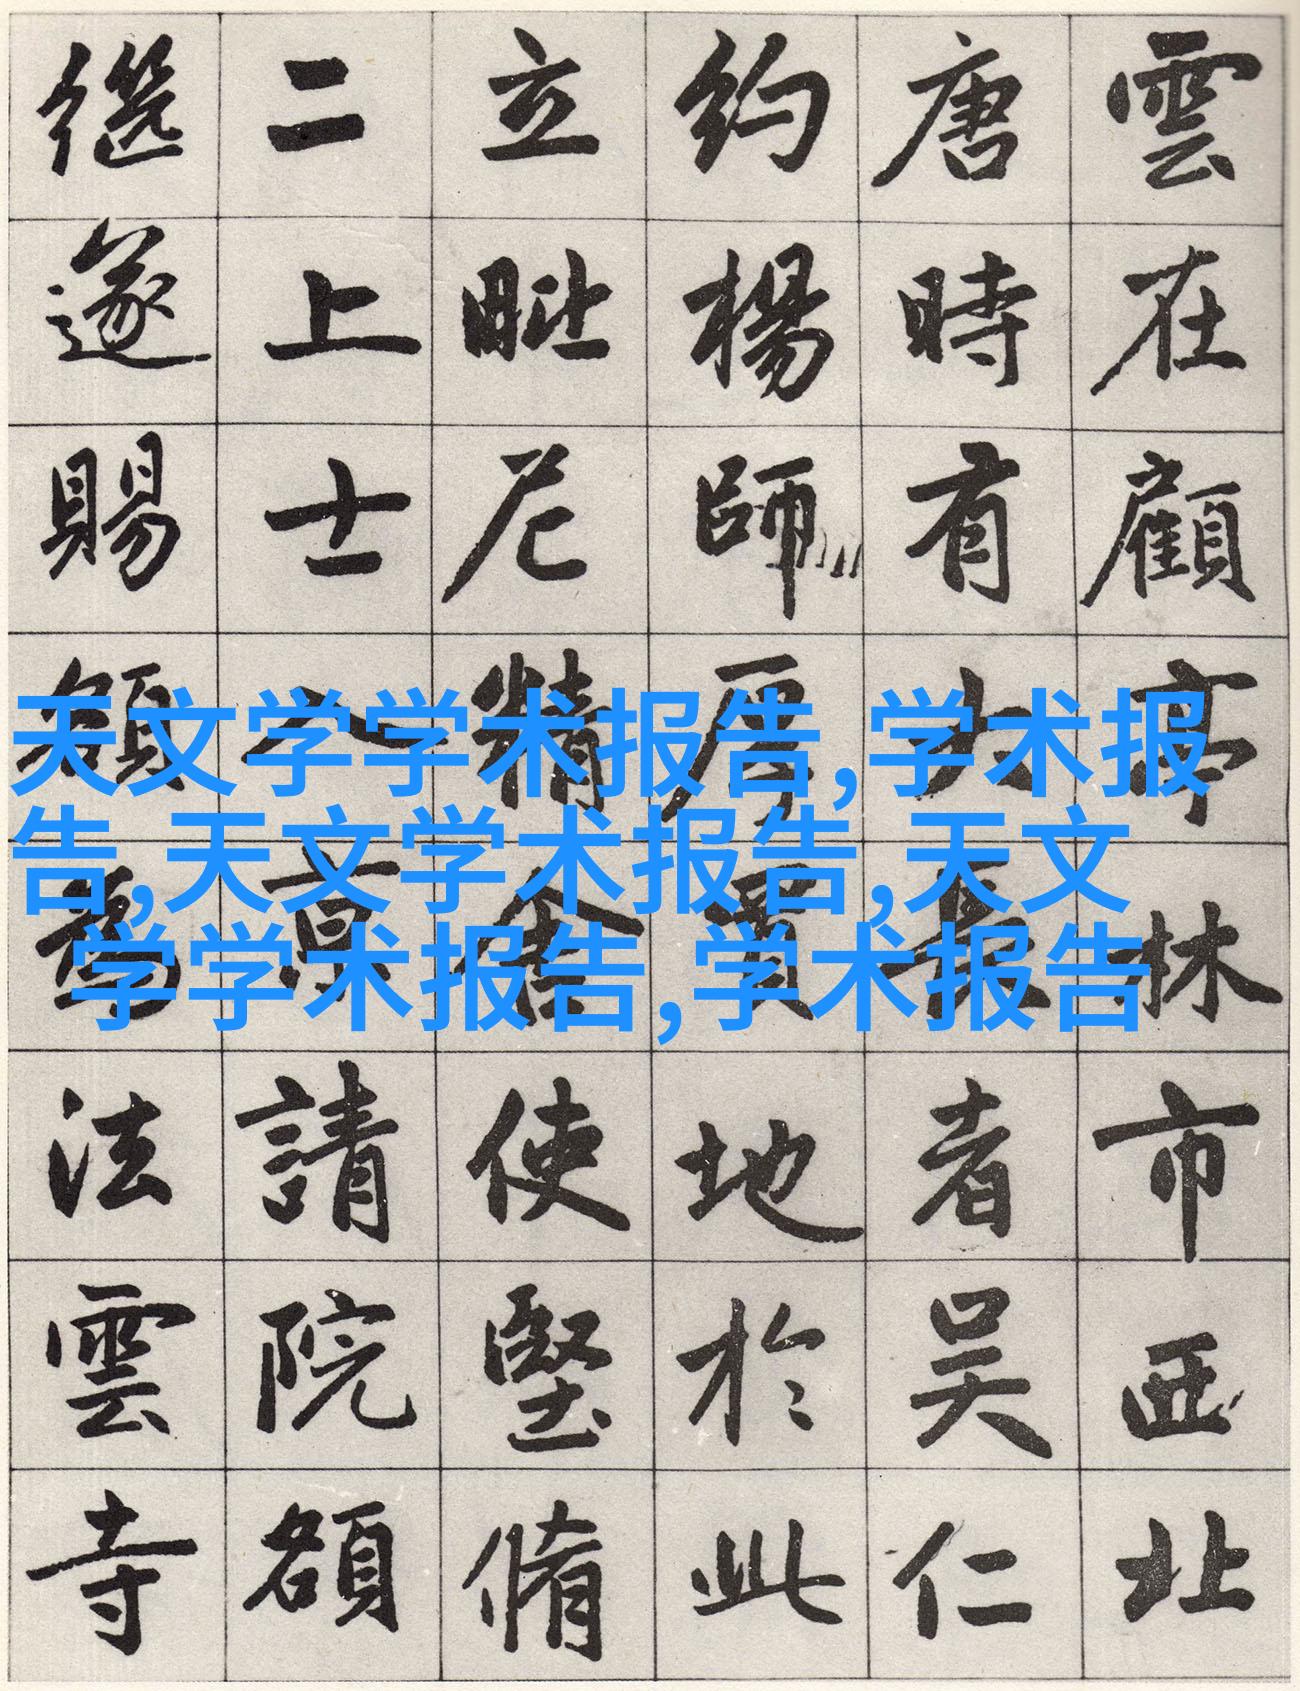 雲在顧亭林市西北
唐時有大長者吴仁
約楊師厚地於此
立毗尼精舍使堅脩
二上士入京請院額
遂賜額爲法雲寺
天文学学术报告,学术报
告,天文学术报告,天文
学学术报告,学术报告